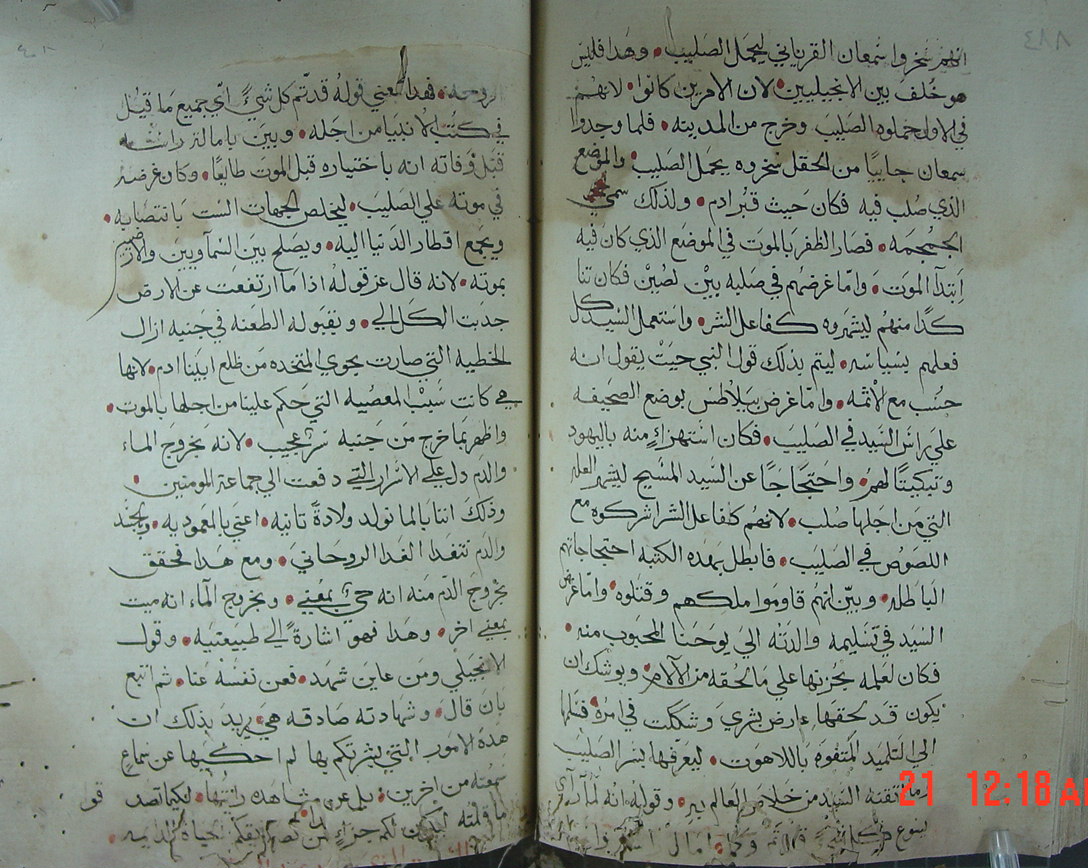 انهم سخروا شمعان القرناني ليحمل الصليب • وهدا فليس
هو خلف بين الانجيليين • لان الامرين كانوا • لانهم
في الاول حملوه الصليب وخرج من المدينه • فلما وجدوا
سمعان جاييًا من الحقل سخروه بحمل الصليب • والموضع
الذي صلب فيه فكان حيث قبر ادم • ولذلك سمي
الجمجمه • فصار الظفر بالموت في الموضع الذي كان فيه
ابتدا الموت • وامّا غرضهم في صلبه بين لصين فكان
كدا منهم ليشهروه كفاعل الشر • واستعمل السيد كل
فعلهم بسياسه • ليتم بذلك قول النبي حيث يقول انه
حسب مع الاثمه • وامّا غرض بيلاطس بوضع الصحيفه
علي راس السيد في الصليب • فكان استهزاءٍ منه باليهود
وتبكيتًا لهم • واحتجاجًا عن السيد المسيح ليشهر العله
التي من اجلها صلب • لانهم كفاعل الشر اشركوه مع
اللصوص في الصليب • فابطل بهده الكتبه احتجاجاتهم
الباطله • وبيّن انهم قاوموا ملكهم وقتلوه • وامّا غرض
السيد في تسليمه والدته الي يوحنا المحبوب منه •
فكان لعلمه بحزنها علي ما لحقه من الالام • ويوشك ان
يكون قد لحقها عارض بشري وشككت في امره فسلمها
الي التلميد المتفوه باللاهوت • ليعرفها بسر الصليب
السيد من خلاص العالم • وقوله انه لما راي
الروحيه • فهدا المعني قوله قد تم كل شيٍ اي جميع ما قيل
في كتب الانبيا من اجله • وبيّن
قبل وفاته انه باختياره قبل الموت طايعًا • وكان غرضه
في موته علي الصليب • ليخلص الجهات الست بانتصابه •
ويجمع اقطار الدنيا اليه • ويصلح بين السماويين والارضيين
بموته • لانه قال عز قوله اذا ما ارتفعت عن الارض
جدبت الكل الي • وتقبوله الطعنه في جنبه ازال
الخطيه التي صارت بحوي المتخده من ظلع ابينا ادم • لانها
هي كانت سبب المعصيه التي حكم علينا من اجلها بالموت •
واظهر بما خرج من جنبه سر عجيب • لانه بخروج الماء
والدم دل علي الاسرار التي دفعت الي جماعة المومنين •
وذلك اننا بالما نولد ولادةً تانيه • اعني بالمعموديه •
والدم نتغدا الغدا الروحاني • ومع هدا فحقق
بخروج الدم منه انه حي بمعني • وبخروج الماء انه ميت
بمعني اخر • وهدا فهو اشارةً الي طبيعتيه • وقول
الانجيلي ومن عاين شهد • فعن نفسه عنا • ثم اتبع
بان قال • وشهادته صادقه هي • يريد بذلك ان
هده الامور التي بشرتكم بها لم احكيها عن سماعٍ
سمعته من اخرين • بل عن مشاهده رايتها • لكيما تصدقو
ما قلته